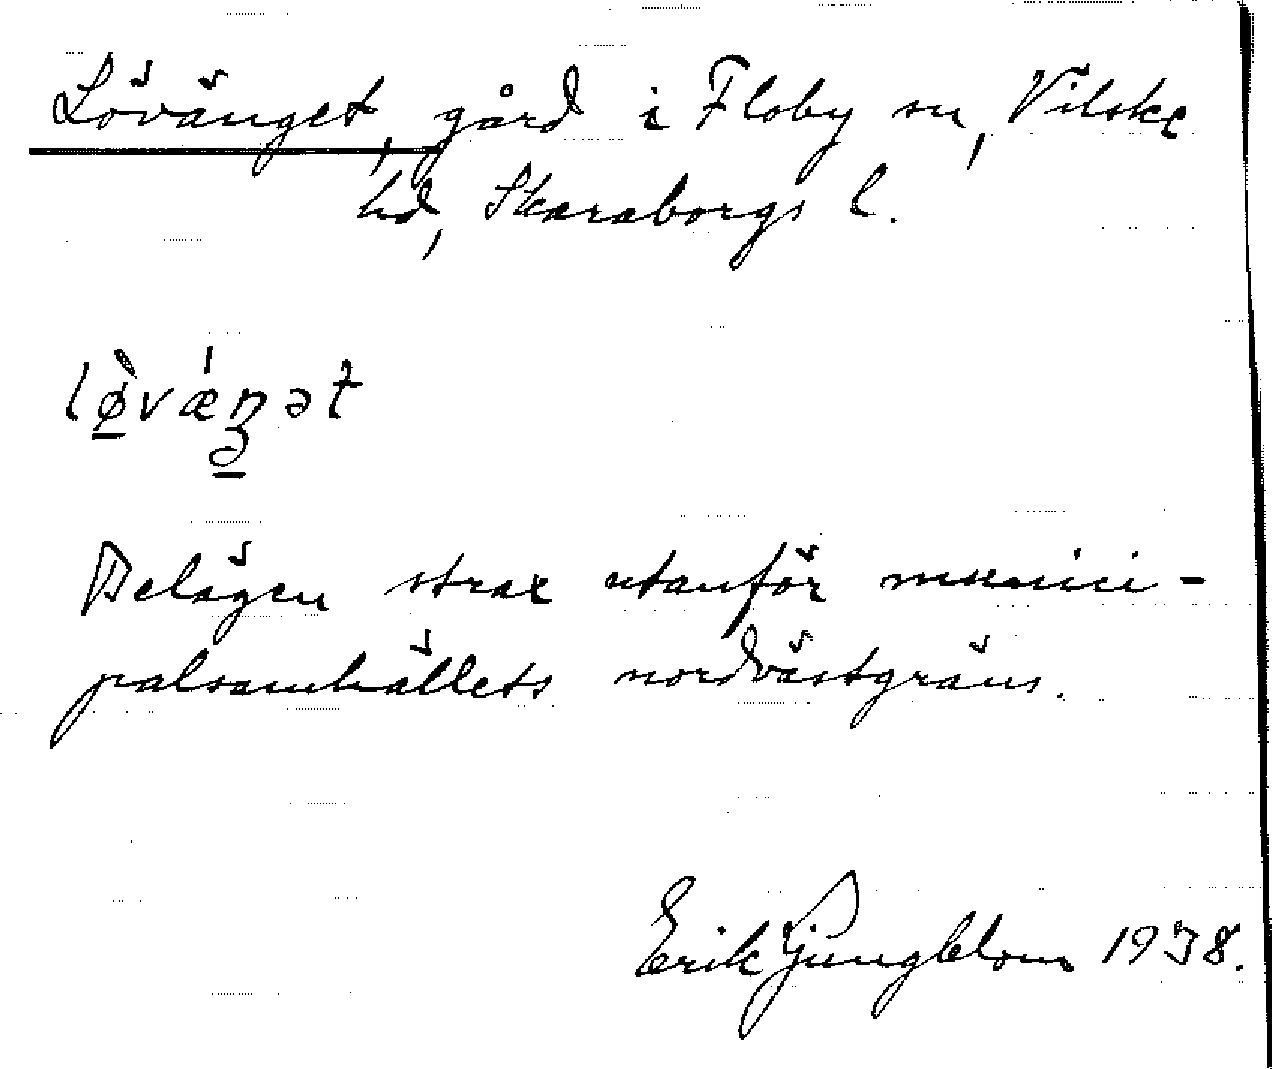 Lövänget, gård i Floby sn, Vilske
hd, Skaraborgs l.
lø̀vǽŋət
Belägen strax utanför munici-
palsamhällets nordvästgräns.
Erik Ljungblom 1938.